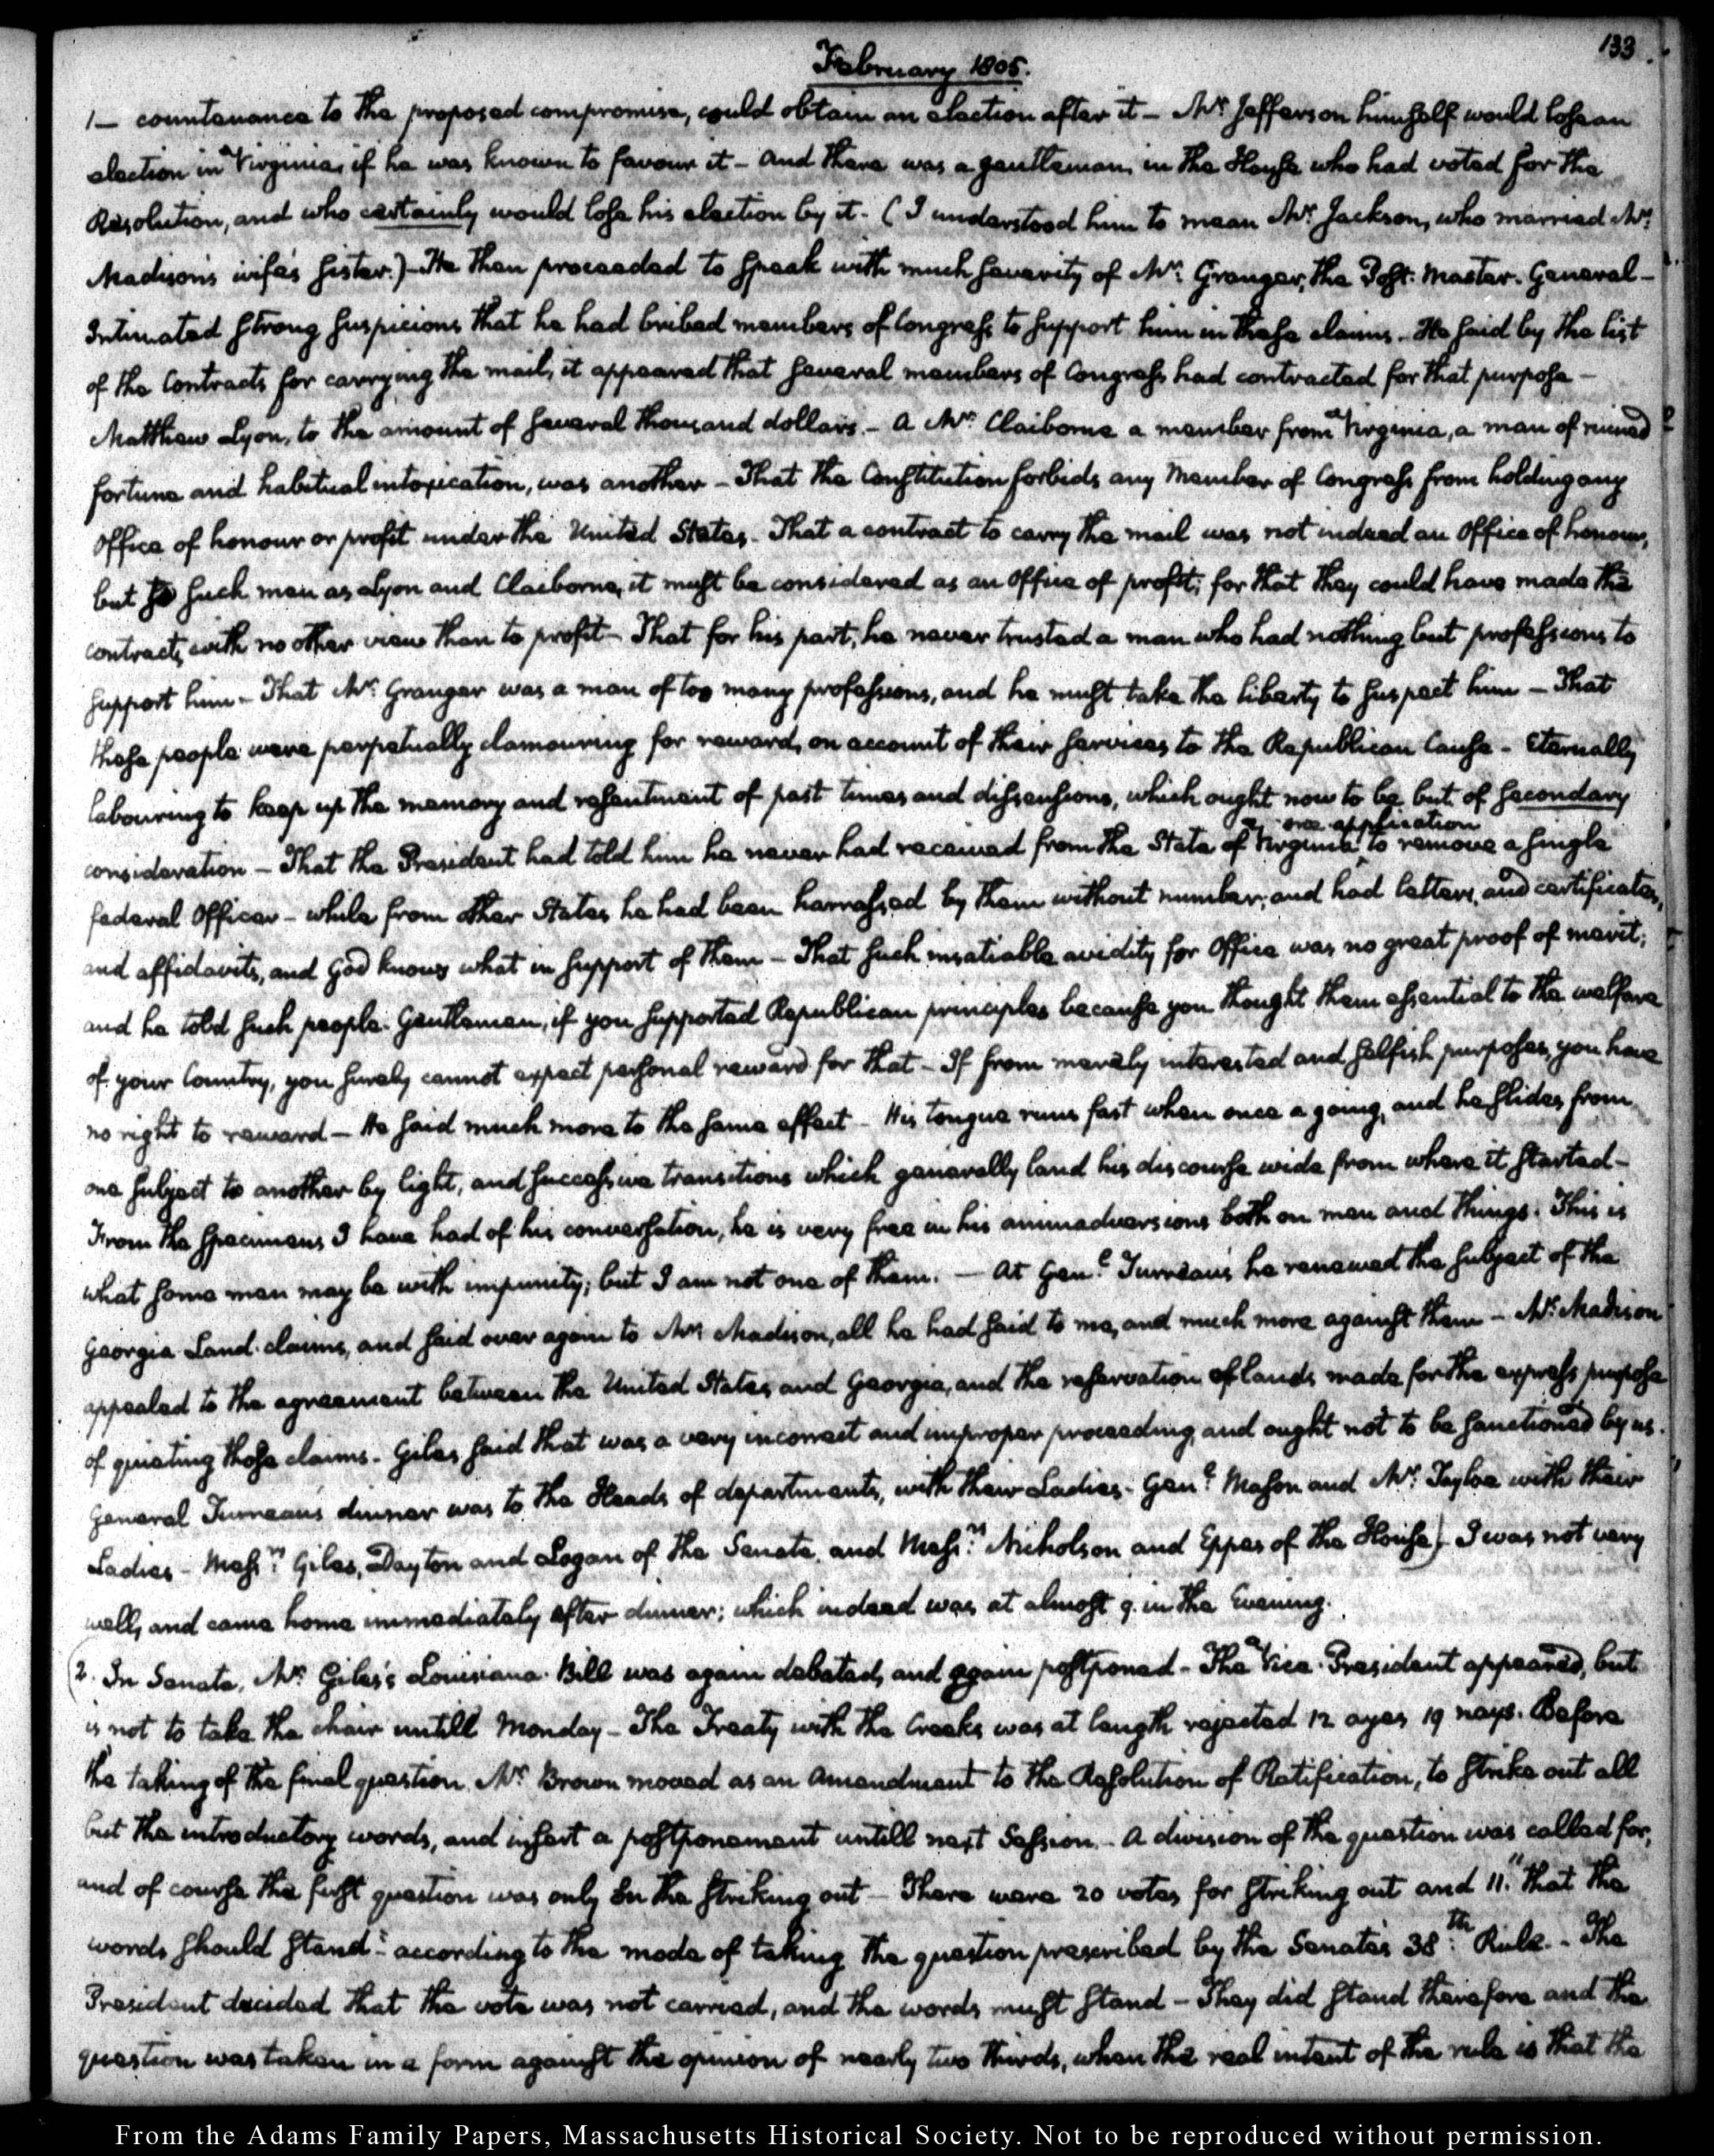 133
February 1805.
1— countenance to the proposed compromise, could obtain an election after it — Mr. Jefferson himself would lose an
election in Virginia, if he was known to favour it — And there was a gentleman, in the House who had voted for the
Resolution, and who certainly would lose his election by it. (I understood him to mean Mr. Jackson, who married Mrs.
Madison's wife's sister.) — He then proceeded to speak with much severity of Mr. Granger, the Post-Master-General —
Intimated strong suspicions that he had bribed members of Congress to support him in these claims. He said by the list
of the Contracts for carrying the mail, it appeared that several members of Congress had contracted for that purpose —
Matthew Lyon, to the amount of several thousand dollars. — A Mr. Claiborne a member from Virginia, a man of ruined
fortune and habitual intoxication, was another — That the Constitution forbids any Member of Congress from holding any
Office of honour or profit under the United States. That a contract to carry the mail was not indeed an Office of honour,
but to such men as Lyon and Claiborne, it must be considered as an Office of profit; for that they could have made the
contracts, with no other view than to profit — That for his part, he never trusted a man who had nothing but professions to
support him — That Mr. Granger was a man of too many professions, and he must take the liberty to suspect him — That
these people were perpetually clamouring for reward, on account of their services, to the Republican Cause — Eternally
labouring to keep up the memory and resentment of past times and dissensions, which ought now to be but of secondary
consideration — That the President had told him he never had received from the State of Virginia one application to remove a single
federal Officer — while from other States he had been harrassed by them without number; and had letters, and certificates,
and affidavits, and God knows what in support of them — That such insatiable avidity for Office was no great proof of merit;
and he told such people. Gentlemen, if you supported Republican principles because you thought them essential to the welfare
of your Country, you surely cannot expect personal reward for that — If from merely interested and selfish purposes, you have
no right to reward — He said much more to the same effect — His tongue runs fast when once a going, and he slides from
one subject to another by light, and successive transitions which generally land his discourse wide from where it started —
From the specimens I have had of his conversation, he is very free in his animadversions both on men and things. This is
what some men may be with impunity; but I am not one of them. — At Genl. Turreau's he renewed the subject of the
Georgia Land-claims, and said over again to Mr. Madison, all he had said to me, and much more against them — Mr. Madison
appealed to the agreement between the United States and Georgia, and the reservation of lands made for the express purpose
of quieting those claims. Giles said that was a very incorrect and improper proceeding, and ought not to be sanctioned by us.
General Turreau's dinner was to the Heads of departments, with their Ladies — Genl. Mason and Mr. Tayloe with their
Ladies — Messrs. Giles, Dayton and Logan of the Senate, and Messrs. Nicholson and Eppes of the House) I was not very
well, and came home immediately after dinner; which indeed was at almost 9. in the Evening.
2. In Senate, Mr. Giles's Louisiana Bill was again debated, and again postponed — The Vice-President appeared, but
is not to take the chair untill Monday — The Treaty with the Creeks was at length rejected 12 ayes 19 nays. Before
the taking of the final question, Mr. Brown moved as an Amendment to the Resolution of Ratification, to strike out all
but the introductory words, and insert a postponement untill next Session — A division of the question was called for,
and of course the first question was only on the striking out — There were 20 votes for striking out and 11. "that the
words should stand" according to the mode of taking the question prescribed by the Senate's 38th. Rule. — The
President decided that the vote was not carried, and the words must stand — They did stand therefore and the
question was taken in a form against the opinion of nearly two thirds, when the real intent of the rule is that the
From the Adams Family Papers, Massachusetts Historical Society. Not to be reproduced without permission.